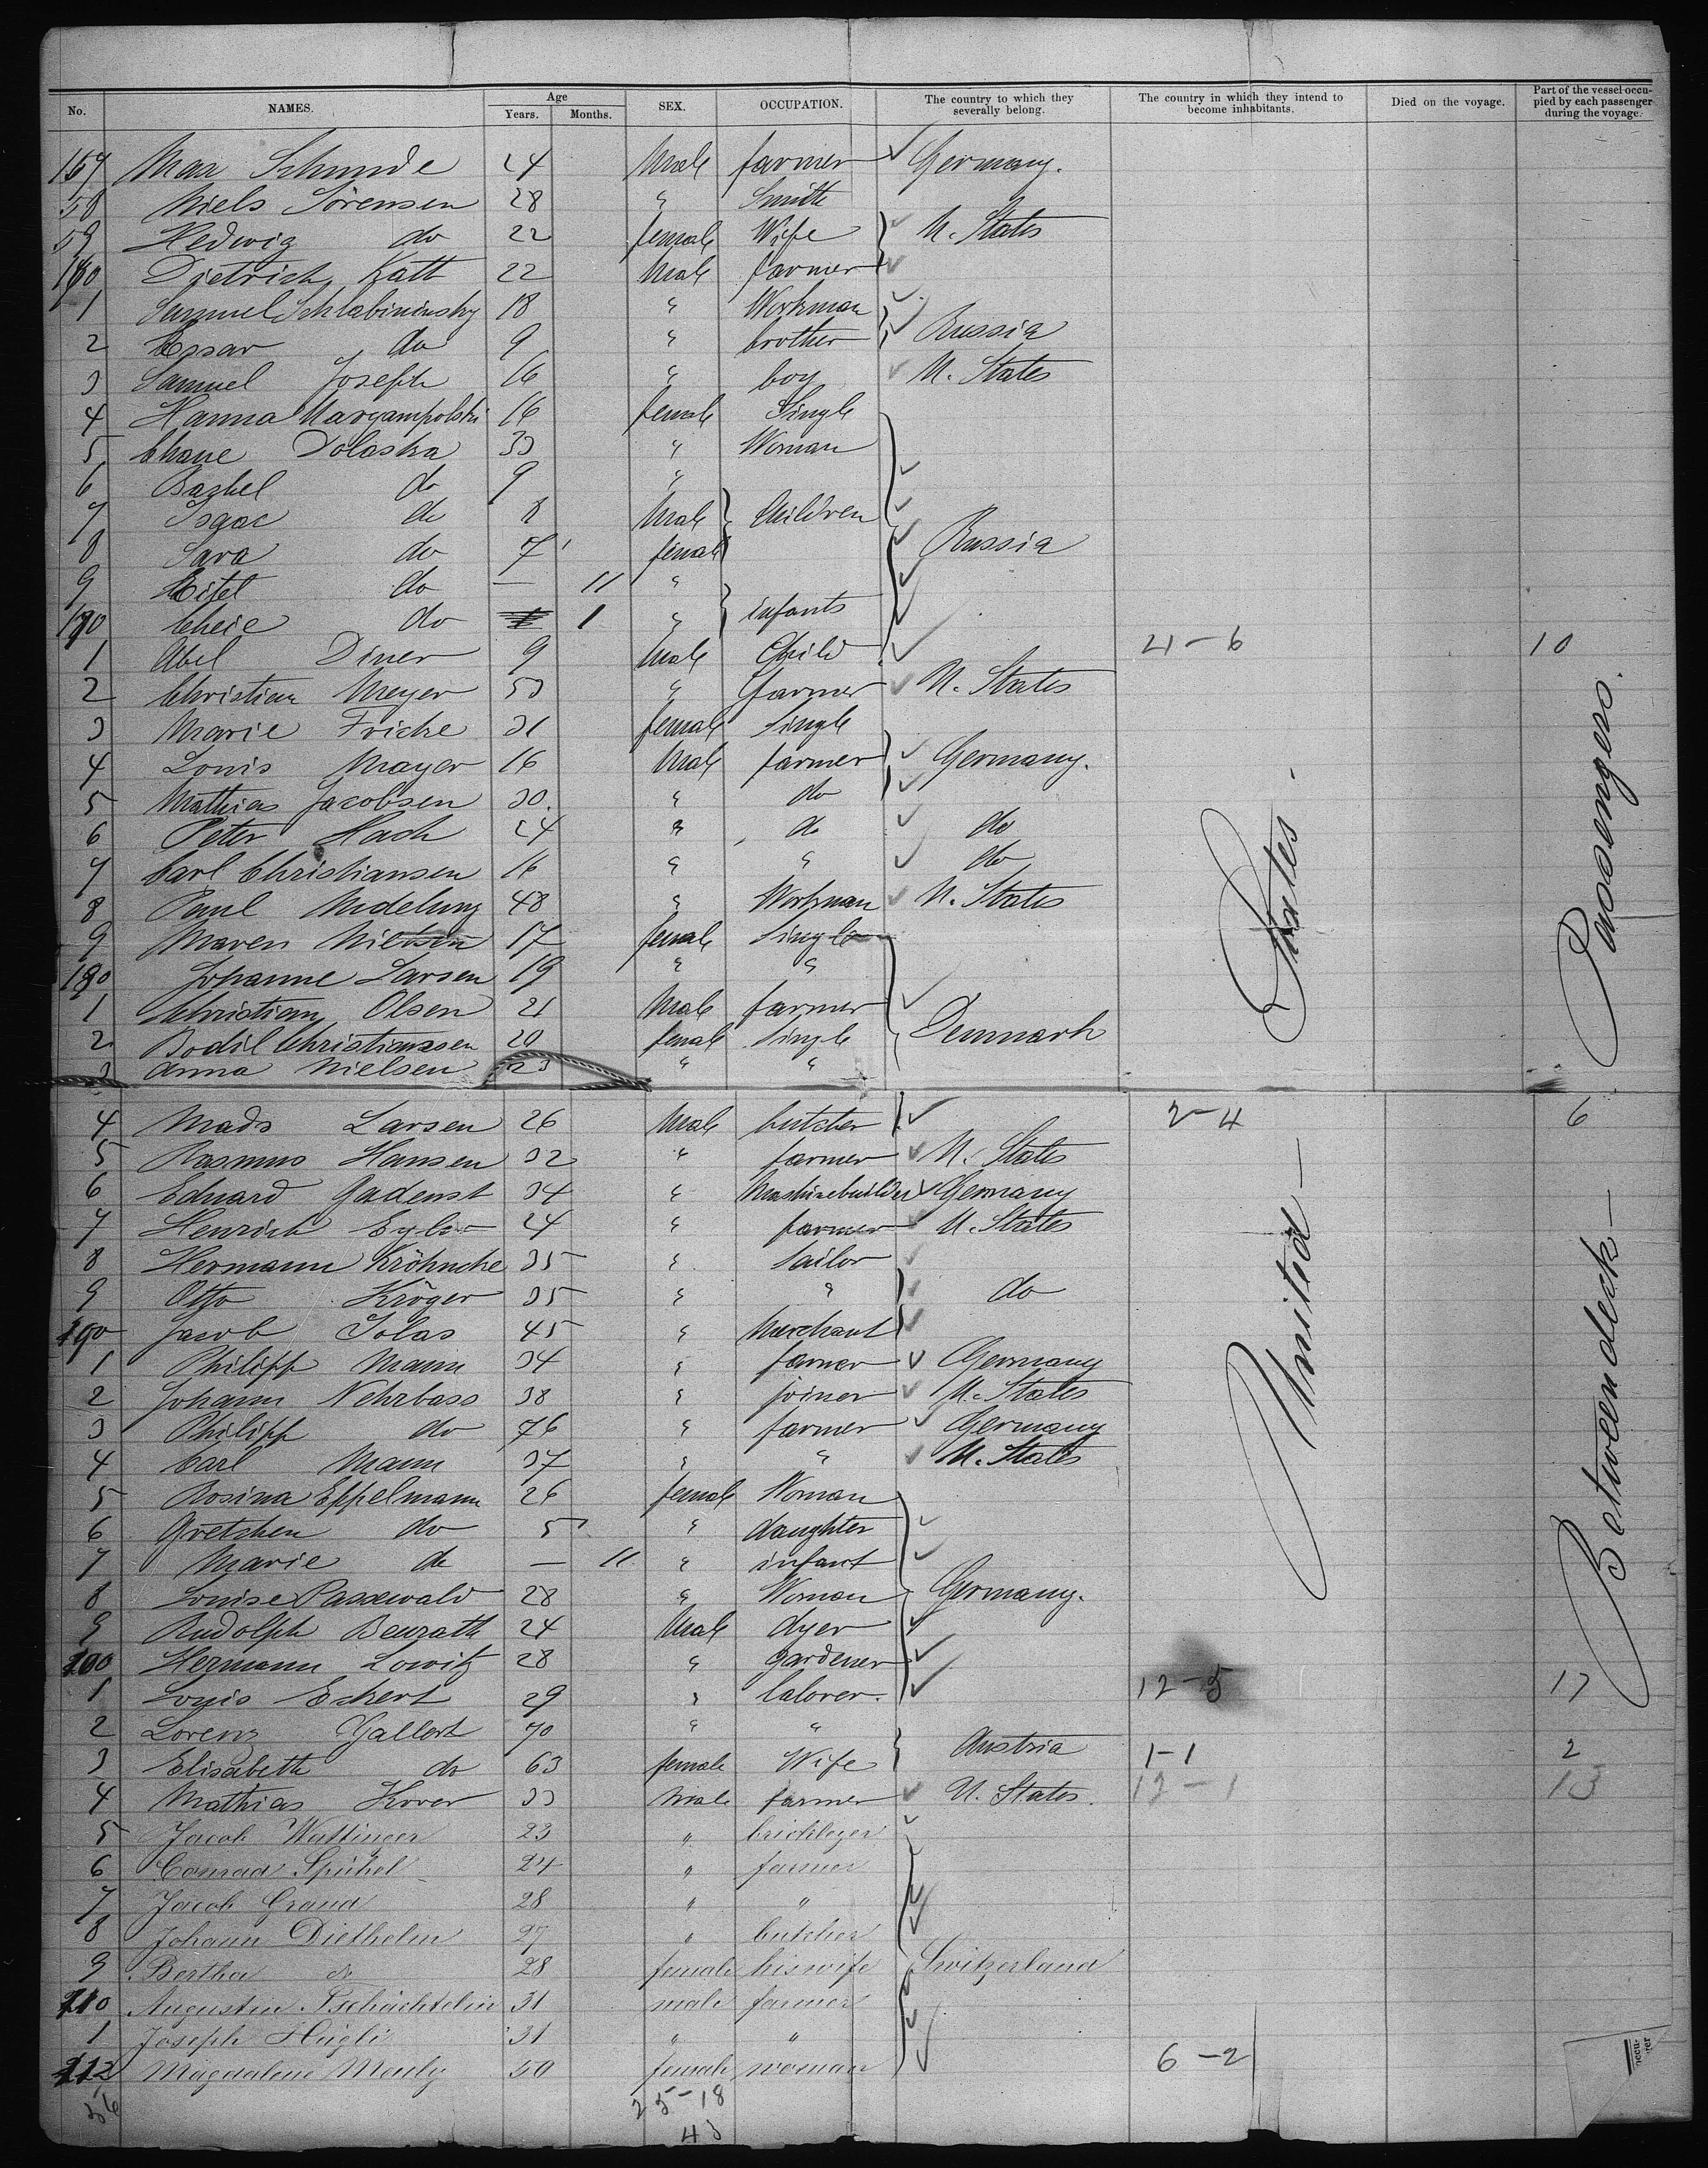 No. NAMES. Age Years. Months. SEX. OCCUPATION. The country to which they severally belong. The country in which they intend to become inhabitants. Died on the voyage. Part of the vessel occupied by each passenger during the voyage.
157 Max Schmide 24 Male farmer Germany.
58 Niels Sörensen 28 " Smith
59 Hedwig do 22 female Wife U. States
160 Dietrich Katt 22 Male farmer
1 Samuel Schlabininsky 18 " Workman
2 Essar do 9 " brother Russia
3 Samuel Joseph 16 " boy U. States
4 Hanna Maryampolski 16 female Single
5 Chane Dolaska 33 " Woman
6 Bazhel do 9 "
7 Isaac do 8 Male Children
8 Sara do 7 female Russia
9 Eitel do — 11 "
170 Cheie do 1 " infants
1 Abel Diner 9 Male Child 21-6 10
2 Christian Meyer 53 " farmer U. States
3 Marie Fricke 31 female Single
4 Louis Mayer 16 Male farmer Germany.
5 Mathias Jacobsen 30. " do
6 Peter Hach 24 " do do
7 Carl Christiansen 16 " " do
8 Paul Medelung 48 " Workman U. States
9 Maren Nielsen 17 female Single
180 Johanne Larsen 19 " "
1 Christian Olsen 21 Male farmer
2 Bodil Christianssen 20 female Single Denmark
3 Anna Nielsen 23 " "
4 Mads Larsen 26 Male butcher 2-4 6
5 Rasmus Hansen 32 " farmer U. States
6 Eduard Gadenst 34 " Mashinebuilder Germany
7 Henrich Eyler 24 " farmer U. States
8 Hermann Kröhncke 35 " Sailor
9 Otto Kröger 35 " " do
190 Jacob Tolas 45 " Merchant
1 Philipp Mann 34 " farmer Germany
2 Johann Nehrbass 38 " joiner U. States
3 Philipp do 76 " farmer Germany
4 Carl Mann 37 " " U. States
5 Rosina Eppelmann 26 female Woman
6 Gretchen do 5 " daughter
7 Marie do — 11 " infant
8 Louise Pasewald 28 " Woman Germany.
9 Rudolph Benrath 24 Male dyer
100 Hermann Lowitz 28 " gardener
1 Louis Eckert 29 " laborer. 12-5 17
2 Lorenz Gallert 70 " "
3 Elisabeth do 63 female Wife Austria 1-1 2
4 Mathias Korer 33 Male farmer U. States. 12-1 13
5 Jacob Wattinger 23 " brickleyer
6 Conrad Spühel 24 " farmer
7 Jacob Grand 28 " "
8 Johann Diethelm 27 " butcher
9 Bertha do 28 female his wife Switzerland
210 Augustin Tschächtelin 31 male farmer
1 Joseph Hügli 31 " "
212 Magdalene Mouly 50 female woman 6-2
56 25-18
43
United States.
Between deck Passengers.